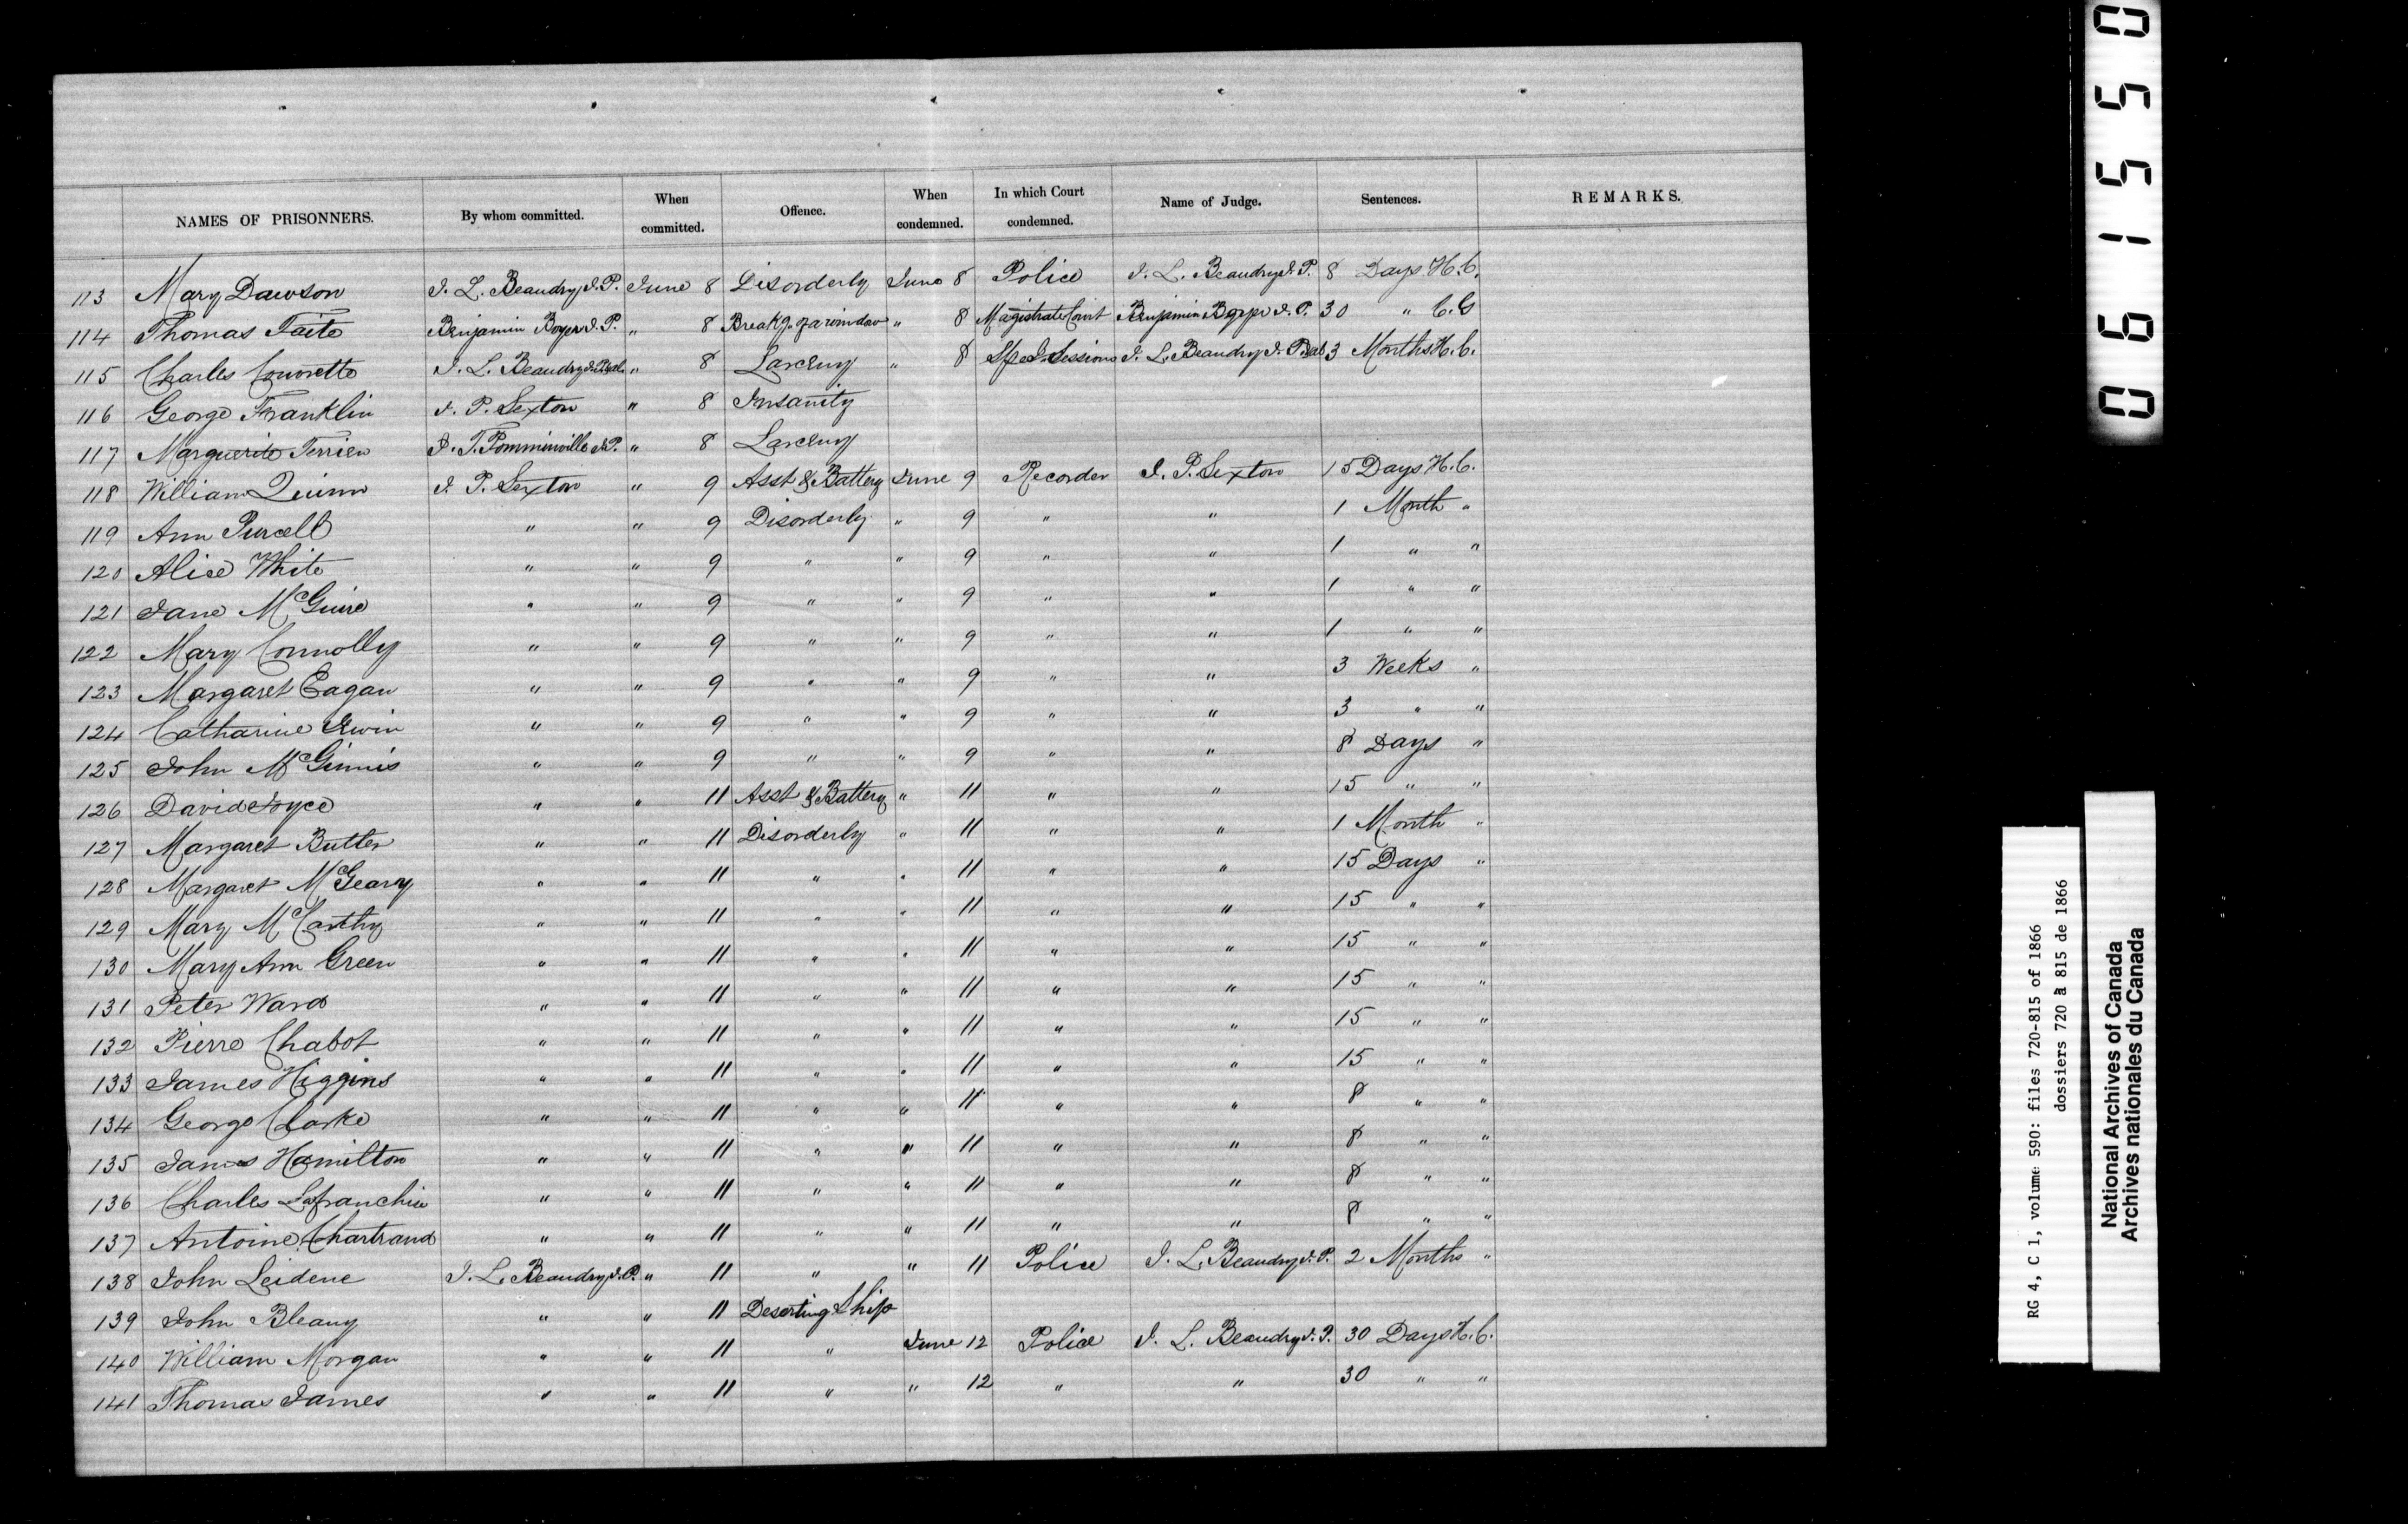 NAMES OF PRISONNERS. By whom committed. When committed. Offence. When condemned. In which Court condemned. Name of Judge. Sentences. REMARKS.
113 Mary Dawson J. L. Beaudry J.P. June 8 Disorderly June 8 Police J. L. Beaudry J.P. 8 Days H.C.
114 Thomas Taite Benjamin J.P. " 8 Breakg. of a window " 8 Magistrate Court Benjamin J.P. 30 " C.G
115 Charles J. L. Beaudry J.P. " 8 Larceny " 8 Sessions J. L. Beaudry J.P. 3 Months H.C.
116 George Franklin J. P. Sexton " 8 Insanity
117 Marguerite Terrien J. T. Pomminville J.P. " 8 Larceny
118 William Quinn J. P. Sexton " 9 Asst & Battery June 9 Recorder J. P. Sexton 15 Days H.C.
119 Ann Purcell " " 9 Disorderly " 9 " " 1 Month "
120 Alice White " " 9 " " 9 " " 1 " "
121 Jane McGuire " " 9 " " 9 " " 1 " "
122 Mary Connolly " " 9 " " 9 " " 1 " "
123 Margaret Eagan " " 9 " " 9 " " 3 Weeks "
124 Catharine Irwin " " 9 " " 9 " " 3 " "
125 John McGinnis " " 9 " " 9 " " 8 Days "
126 David Joyce " " 11 Asst & Battery " 11 " " 15 " "
127 Margaret Butler " " 11 Disorderly " 11 " " 1 Month "
128 Margaret McGeary " " 11 " " 11 " " 15 Days "
129 Mary McCarthy " " 11 " " 11 " " 15 " "
130 Mary Ann Green " " 11 " " 11 " " 15 " "
131 Peter Ward " " 11 " " 11 " " 15 " "
132 Pierre Chabot " " 11 " " 11 " " 15 " "
133 James Higgins " " 11 " " 11 " " 15 " "
134 George Clarke " " 11 " " 11 " " 8 " "
135 James Hamilton " " 11 " " 11 " " 8 " "
136 Charles Lafranchise " " 11 " " 11 " " 8 " "
137 Antoine Chartrand " " 11 " " 11 " " 8 " "
138 John Leidene J. L. Beaudry J.P. " 11 " " 11 Police J. L. Beaudry J.P. 2 Months "
139 John Bleany " " 11 Deserting Ship
140 William Morgan " " 11 " June 12 Police J. L. Beaudry J.P. 30 Days H.C.
141 Thomas James " " 11 " " 12 " " 30 " "
061550
RG 4, C 1, volume 590: files 720-815 of 1866
dossiers 720 à 815 de 1866
National Archives of Canada
Archives nationales du Canada